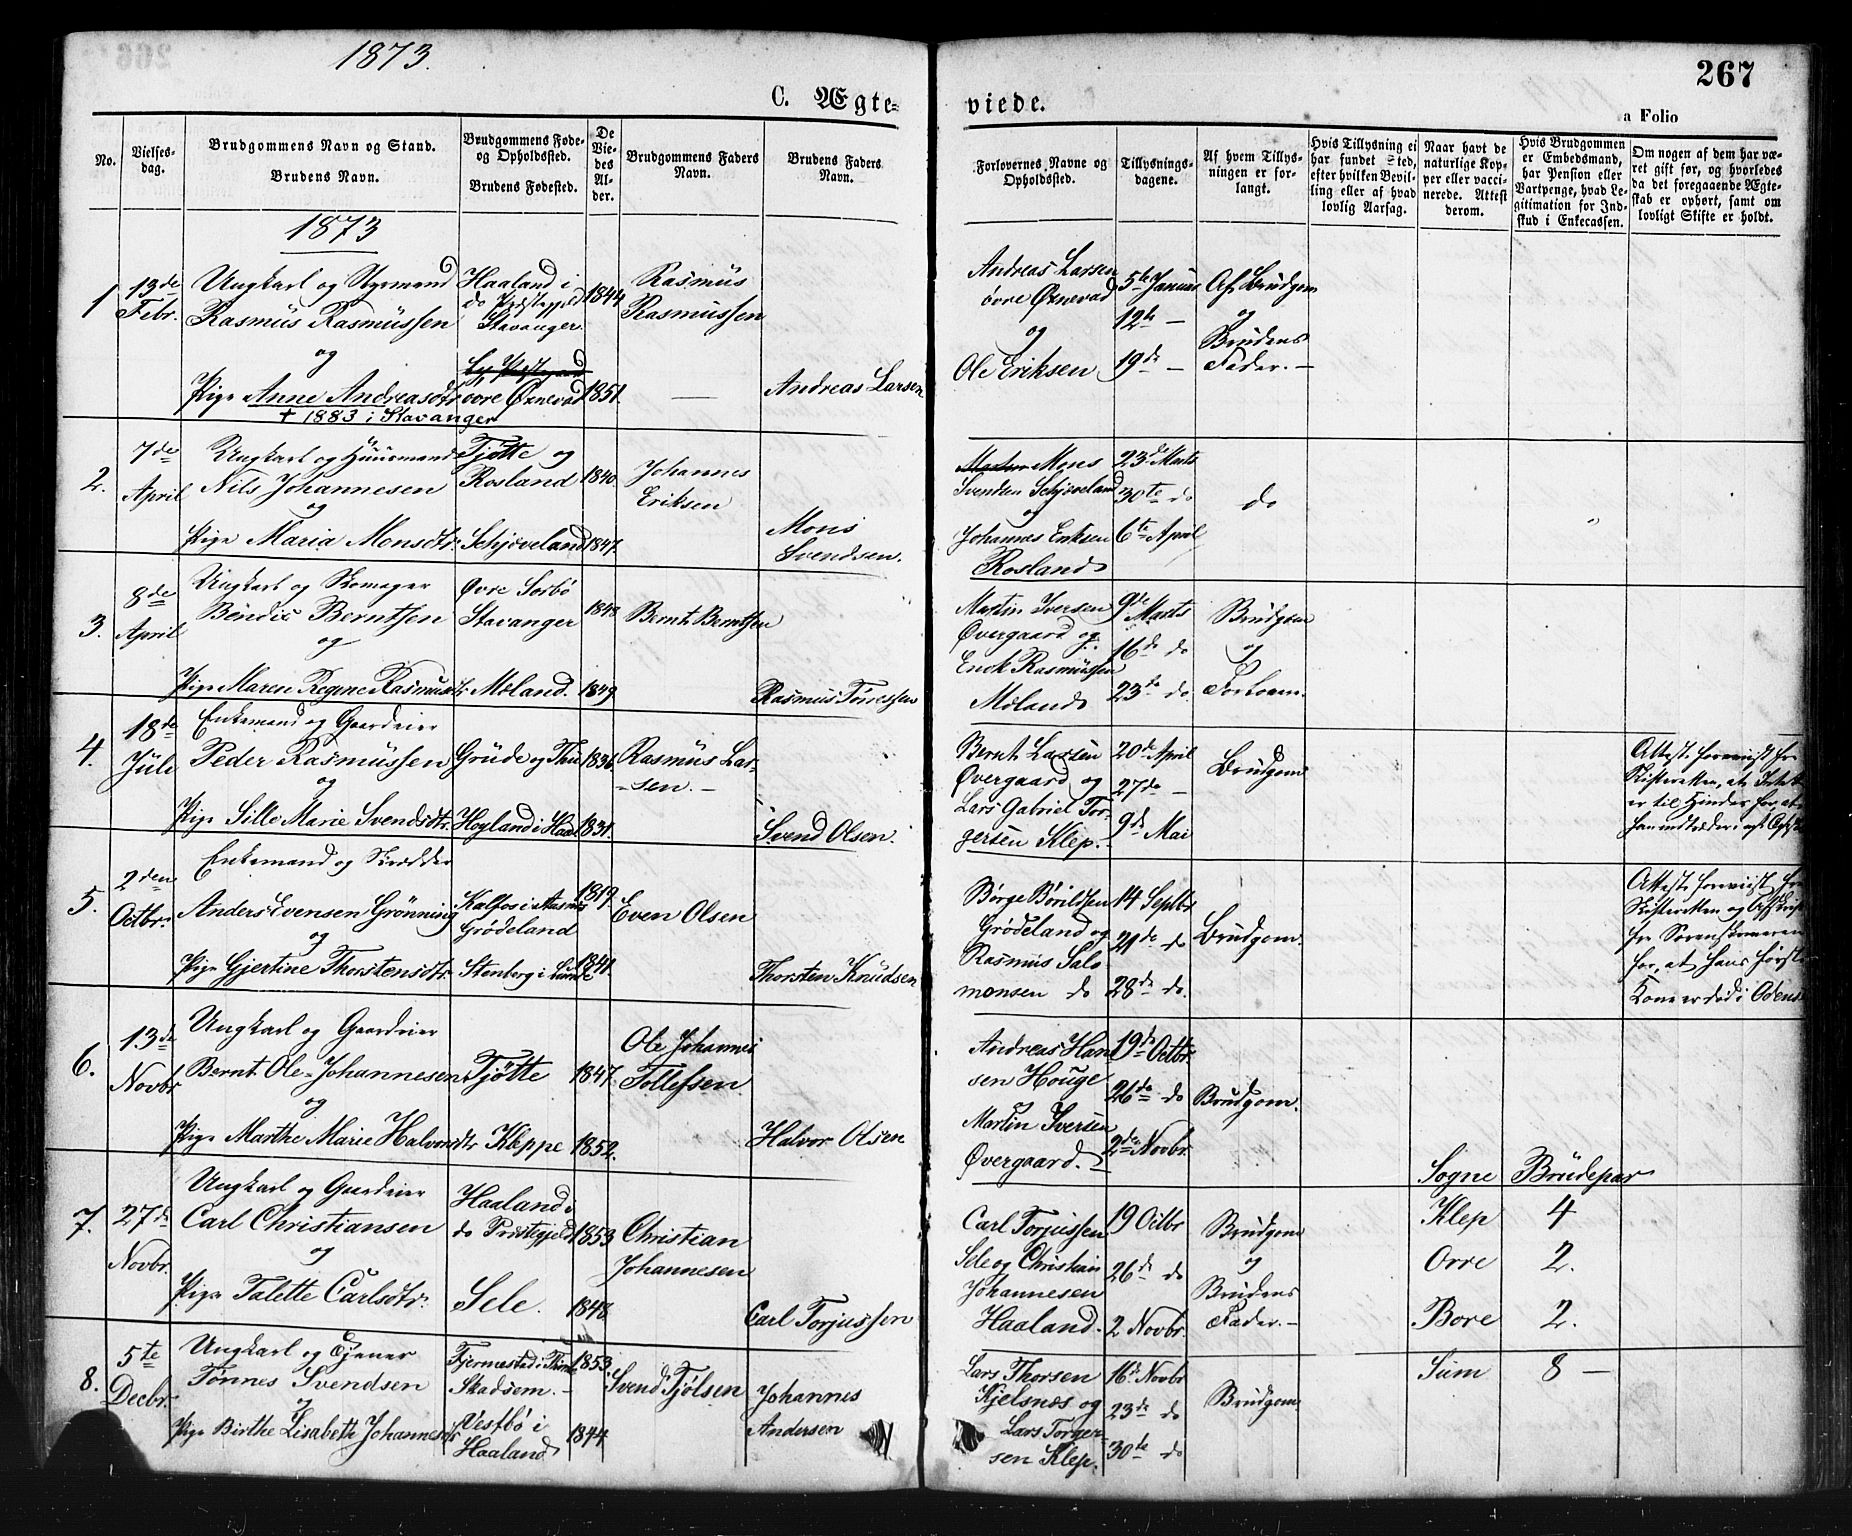 1873.
C. Ægte-
viede.
267
a Folio
No.
Vielses-
dag.
Brudgommens Navn og Stand.
Brudens Navn.
Brudgommens Føde-
og Opholdssted.
Brudens Fødested.
De
Vie-
des
Al-
der.
Brudgommens Faders
Navn.
Brudens Faders
Navn.
Forlovernes Navne og
Opholdssted.
Tillysnings-
dagene.
Af hvem Tillys-
ningen er for-
langt.
Hvis Tillysning ei
har fundet Sted,
efter hvilken Bevil-
ling eller af hvad
lovlig Aarsag.
Naar havt de
naturlige Kop-
per eller vacci-
nerede. Attest
derom.
Hvis Brudgommen
er Embedsmand,
har Pension eller
Vartpenge, hvad Le-
gitimation for Ind-
skud i Enkecassen.
Om nogen af dem har væ-
ret gift før, og hvorledes
da det foregaaende Ægte-
skab er ophørt, samt om
lovligt Skifte er holdt.
1873
1
13de
Febr.
Ungkarl og Styrmand
Rasmus Rasmussen
og
Pige Anne Andreasdtr
+ 1883 i Stavanger
Haaland i
Stavanger.
øvre Øxnevad
1844
1851.
Rasmus
Rasmussen
Andreas Larsen
Andreas Larsen
øvre Øxnevad
og
Ole Eriksen
5te Januar
12te —
19de —
Af Brudgom
og
Brudens
Fader. —
2.
7de
April
Ungkarl og Huusmand
Nils Johannesen
og
Pige Maria Monsdtr.
Tjøtte og
Rosland
Schjæveland
1840.
1847.
Johannes
Eriksen
Mons
Svendsen.
Mons
Svendsen Schjæveland
og
Johannes Eriksen
Rosland
23de Marts
30te do
6te April
do
3.
8de
April
Ungkarl og Skomager
Bendic Berntsen
og
Pige Maren Regine Rasmusdtr
Øvre Sørbø
Stavanger
Møland.
1849.
Bernt Berntsen
Rasmus Tørressen
Martin Iversen
Øvergaard og
Enok Rasmussen
Møland
9de Marts
16de do
23de do.
Brudgom
og
Forlover.
4.
18de
Jule
Enkemand og Gaardeier
Peder Rasmussen
og
Pige Sille Marie Svendsdtr.
Grude og Thu
Høyland i Haal
1836.
1831.
Rasmus Lar-
sen. —
Svend Olsen.
Bernt Larsen
Øvergaard og
Lars Gabriel Tor-
gersen Klep.
20de April
27de —
9de Mai
Brudgom
Attest foreviist fra
Skifteretten, at Intet
er til Hinder for at
han indtræder i nyt
5.
2den
Octbr.
Enkemand og Skrædder
Anders Evensen Grønning
og
Pige Gjertine Thorstensdtr.
Grødeland
Stenberg i Lunde
1819.
1841.
Even Olsen
Thorsten Knudsen
Børge Børildsen
Grødeland og
Rasmus Salo
monsen do
14 Septbr
21de do
28de do.
Brudgom.
Attest foreviist fra
Skifteretten og Afskrift
fra Sorenskriveren
for, at hans første
Kone er død i Odense
6.
13de
Novbr
Ungkarl og Gaardeier
Bernt Ole Johannesen
og
Pige Marthe Marie Halvorsdtr
Tjøtte
Kleppe
1847.
1852.
Ole Johannes
Tollefsen
Halvor Olsen
Andreas Han
sen Houge
og
Martin Iversen
Øvergaard.
19de Octbr
26de do
2den Novbr
Brudgom.
7.
27de
Novbr.
Ungkarl og Gaardeier
Carl Christiansen
og
Pige Talette Carlsdtr.
Haaland i
do Præstegjeld
Sele.
1853
1848
Christian
Johannesen
Carl Torjussen
Carl Torjussen
Sele og Christian
Johannesen
Haaland.
19 Octbr
26de do
2 Novbr.
Brudgom
og
Brudens
Fader. —
Sogne Brudepar
Klep 4
Orre 2.
Bore 2.
Sum 8 —
8.
5te
Decbr.
Ungkarl og
Tønnes Svendsen
og
Pige Birthe Lisabeth Johannesdtr
Fjermestad i Thime
Skadsem. —
Vestbø i
Haaland
1853.
1844
Svend Tjølsen
Johannes
Andersen
Lars Thorsen
Kjelsnæs og
Lars Torger-
sen Klep.
16de Novbr
23de do
30te do
Brudgom